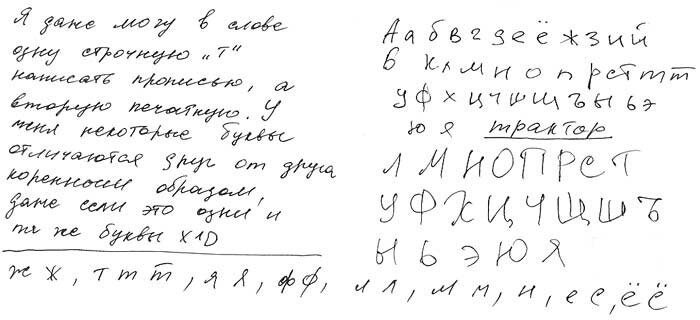 Я даже могу в слове
одну строчную „т"
написать прописью, а
вторую печатную. У
меня некоторые буквы
отличаются друг от друга
коренным образом,
даже если это одни и
те же буквы X1D
ж ж, т т т, я я, ф ф, л л, м м, н, е е, ё ё
А а б в г д е ё ж з и й
б к л м н о п р с т т т
у ф х ц ч ш щ ъ ы ь э
ю я трактор
Л М Н О П Р С Т
У Ф Х Ц Ч Щ Ш Ъ
Ы Ь Э Ю Я